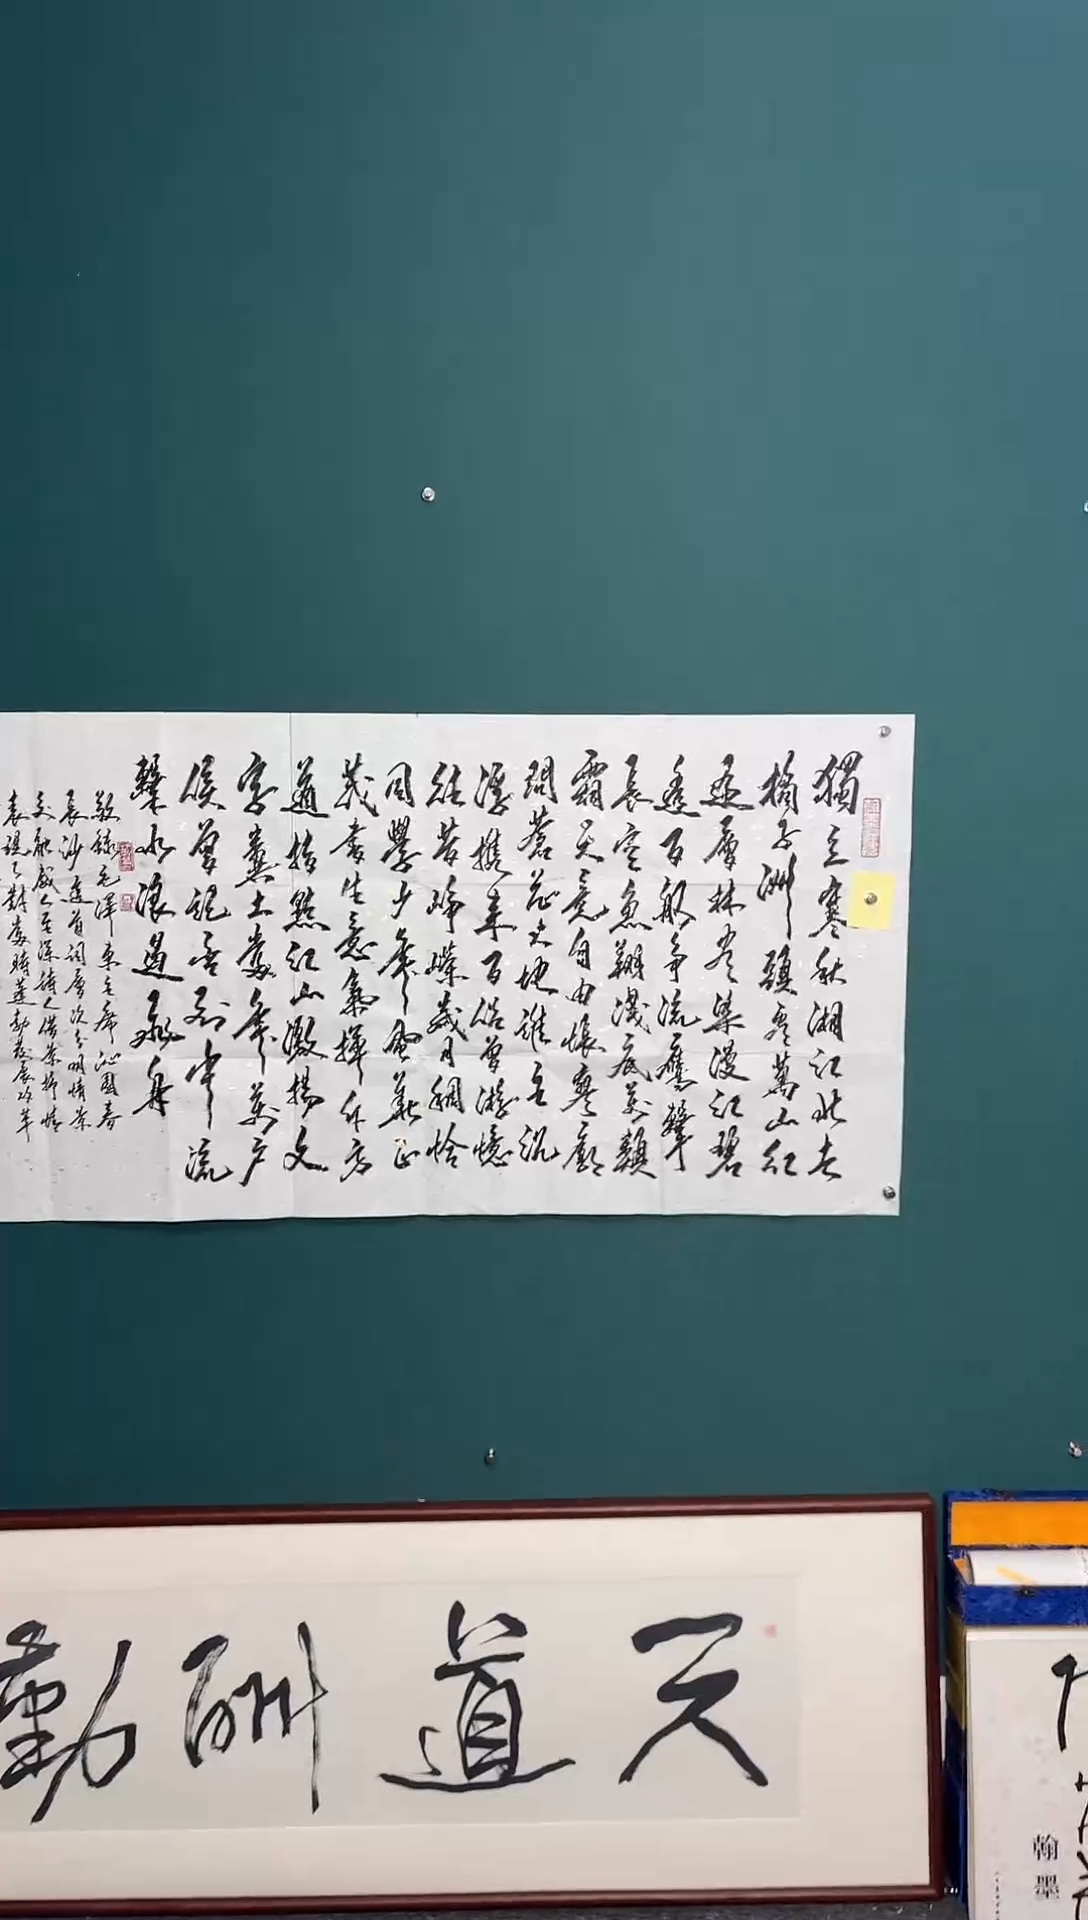 獨立寒秋湘江北去
橘子洲頭看萬山紅
遍層林盡染漫江碧
透百舸爭流鷹擊
長空魚翔淺底萬類
霜天竞自由悵寥廓
問蒼茫大地誰主沉
浮攜來百侶曾游憶
往昔崢嶸歲月稠恰
同學少年風華正
茂書生意氣揮斥方
遒指點江山激揚文
字糞土當年萬户
侯曾記否到中流
擊水浪遏飛舟
敬錄毛澤東主席沁園春
長沙這首詞層次分明情景
交融感人至深詩人借景抒情
天道酬勤
翰墨